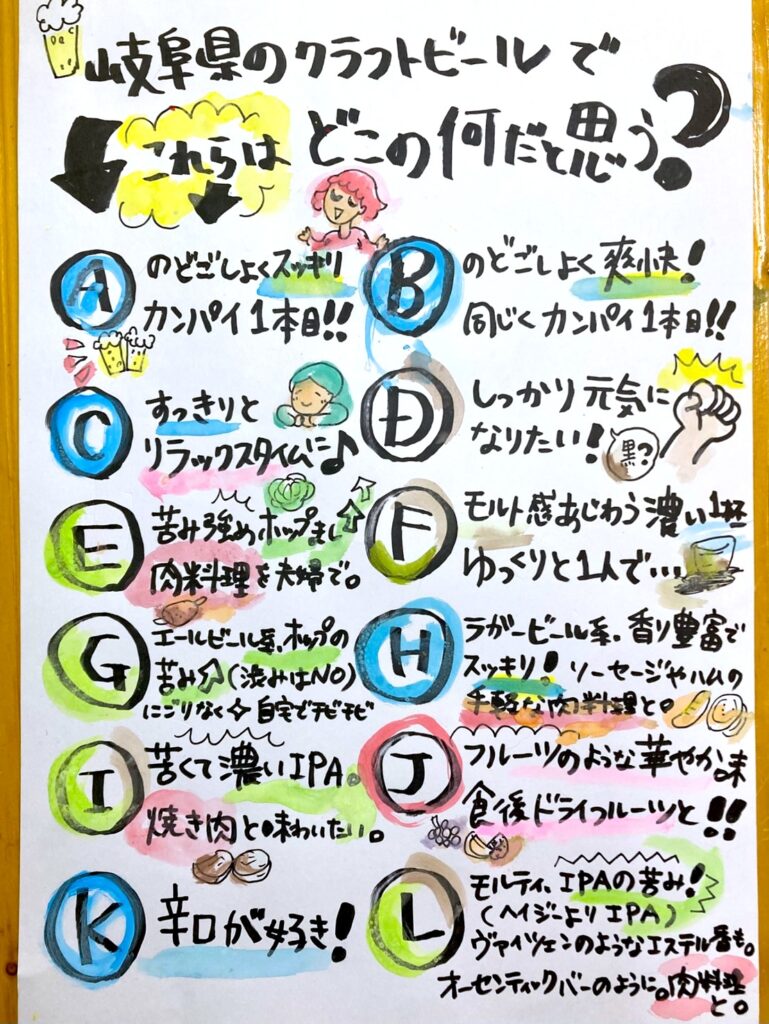 岐阜県のクラフトビールで
これらは どこの何だと思う?
A のどごしよくスッキリ
カンパイ1本目!!
B のどごしよく爽快!
同じくカンパイ1本目!!
C すっきりと
リラックスタイムに♪
D しっかり元気に
なりたい!
黒?
E 苦み強めホップまし
肉料理を夫婦で。
F モルト感あじわう濃い1杯
ゆっくりと1人で…
G エールビール系、ホップの
苦み↑(渋みはNO)
にごりなく✧自宅でチビチビ
H ラガービール系。香り豊富で
スッキリ!ソーセージやハムの
手軽な肉料理と。
I 苦くて濃いIPA。
焼き肉と味わいたい。
J フルーツのような華やか味
食後ドライフルーツと!!
K 辛口が好き!
L モルティ、IPAの苦み!
(ヘイジーよりIPA)
ヴァイツェンのようなエステル香も。
オーセンティックバーのように。肉料理
と。